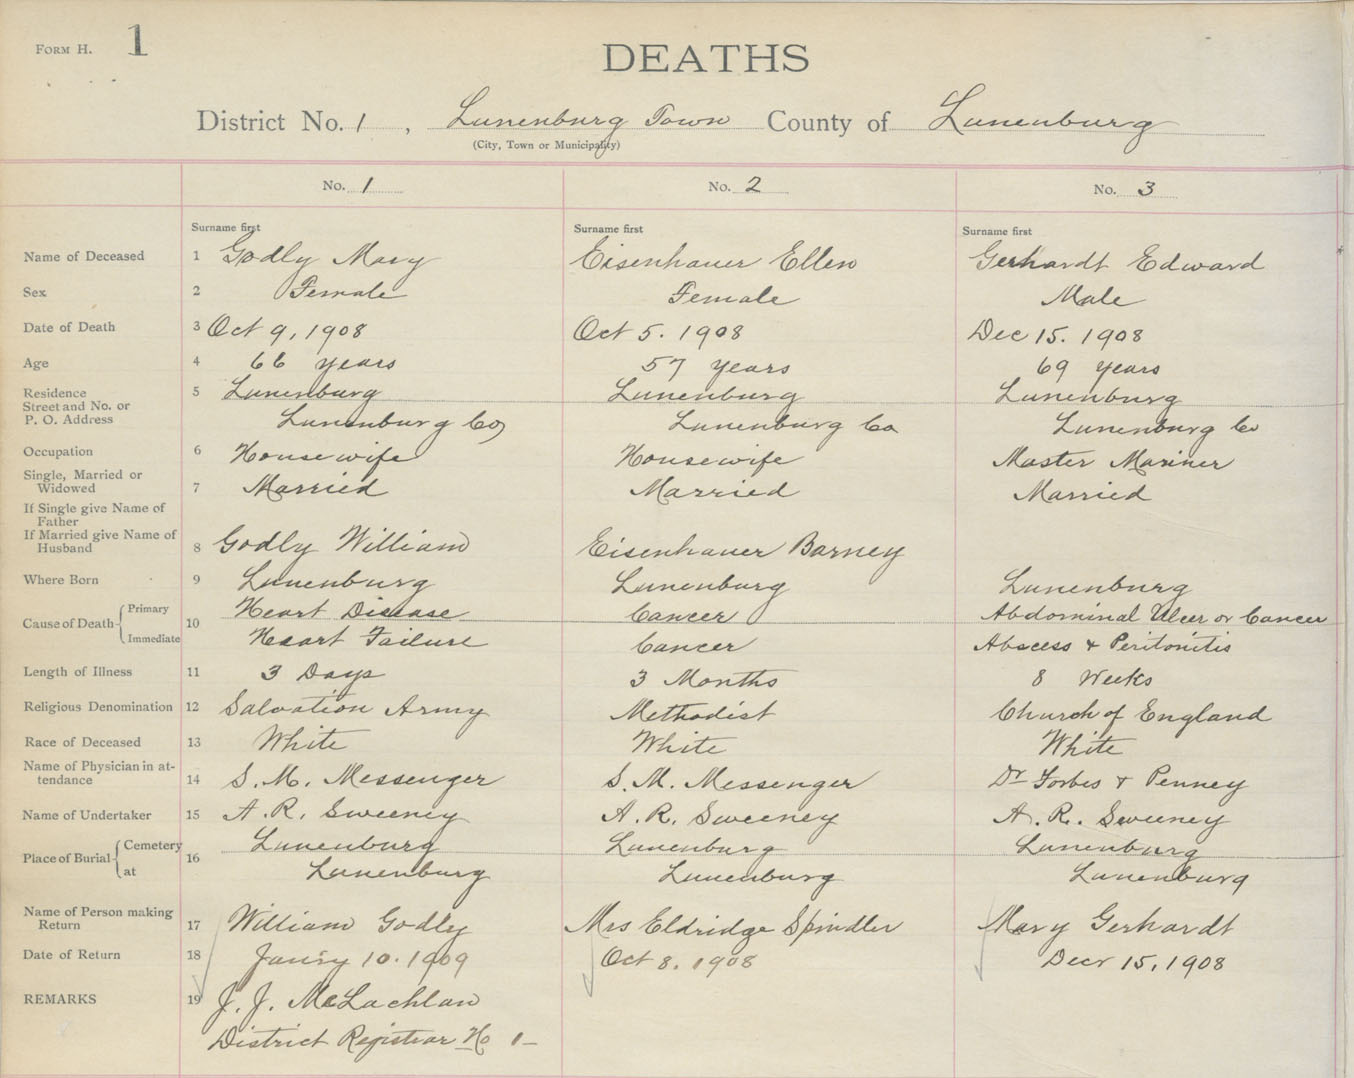 FORM H. 1
DEATHS
District No. 1, Lunenburg Town County of Lunenburg
(City, Town or Municipality)
No. 1 No. 2 No. 3
Surname first Surname first Surname first
Name of Deceased 1 Godly Mary Eisenhauer Ellen Gerhardt Edward
Sex 2 Female Female Male
Date of Death 3 Oct 9, 1908 Oct 5. 1908 Dec 15. 1908
Age 4 66 years 57 years 69 years
Residence 5 Lunenburg Lunenburg Lunenburg
Street and No. or
P. O. Address Lunenburg Co Lunenburg Co Lunenburg Co
Occupation 6 Housewife Housewife Master Mariner
Single, Married or
Widowed 7 Married Married Married
If Single give Name of
Father
If Married give Name of
Husband 8 Godly William Eisenhauer Barney
Where Born 9 Lunenburg Lunenburg Lunenburg
Cause of Death 10 Primary Heart Disease Cancer Abdominal Ulcer or Cancer
Immediate Heart Failure Cancer Abscess & Peritonitis
Length of Illness 11 3 Days 3 Months 8 Weeks
Religious Denomination 12 Salvation Army Methodist Church of England
Race of Deceased 13 White White White
Name of Physician in at-
tendance 14 S. M. Messenger S. M. Messenger Dr Forbes & Penney
Name of Undertaker 15 A. R. Sweeney A. R. Sweeney A. R. Sweeney
Place of Burial 16 Cemetery Lunenburg Lunenburg Lunenburg
at Lunenburg Lunenburg Lunenburg
Name of Person making
Return 17 William Godly Mrs Eldridge Spindler Mary Gerhardt
Date of Return 18 Jan'ry 10. 1909 Oct 8. 1908 Decr 15, 1908
REMARKS 19 J. J. McLachlan
District Registrar No 1